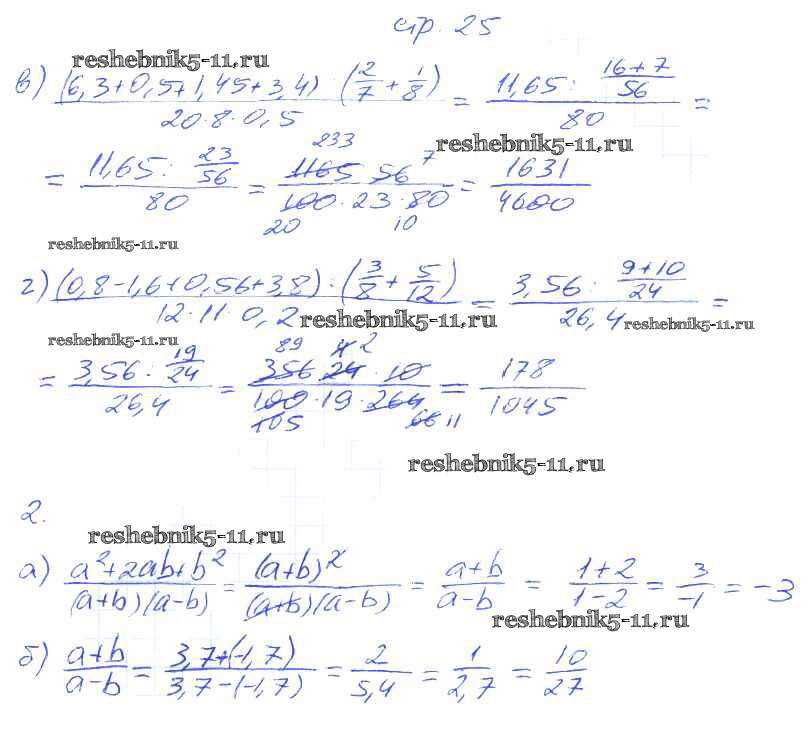 стр. 25
reshebnik5-11.ru
в) ((6,3+0,5+1,45+3,4) : (2/7 + 1/8)) / (20·8·0,5) = (11,65 : (16+7)/56) / 80 =
reshebnik5-11.ru
= (11,65 : 23/56) / 80 = (1165 233 56 7) / (100 20 · 23 · 80 10) = 1631/4600
reshebnik5-11.ru
г) ((0,8-1,6+0,56+3,8) : (3/8 + 5/12)) / (12·11·0,2) = (3,56 : (9+10)/24) / 26,4 =
reshebnik5-11.ru reshebnik5-11.ru
reshebnik5-11.ru
= (3,56 : 19/24) / 26,4 = (356 89 24 2 · 10) / (100 105 · 19 · 264 66 11) = 178/1045
reshebnik5-11.ru
2.
reshebnik5-11.ru
а) (a²+2ab+b²) / ((a+b)(a-b)) = (a+b)² / ((a+b)(a-b)) = (a+b)/(a-b) = (1+2)/(1-2) = 3/-1 = -3
reshebnik5-11.ru
б) (a+b)/(a-b) = (3,7+(-1,7)) / (3,7-(-1,7)) = 2/5,4 = 1/2,7 = 10/27